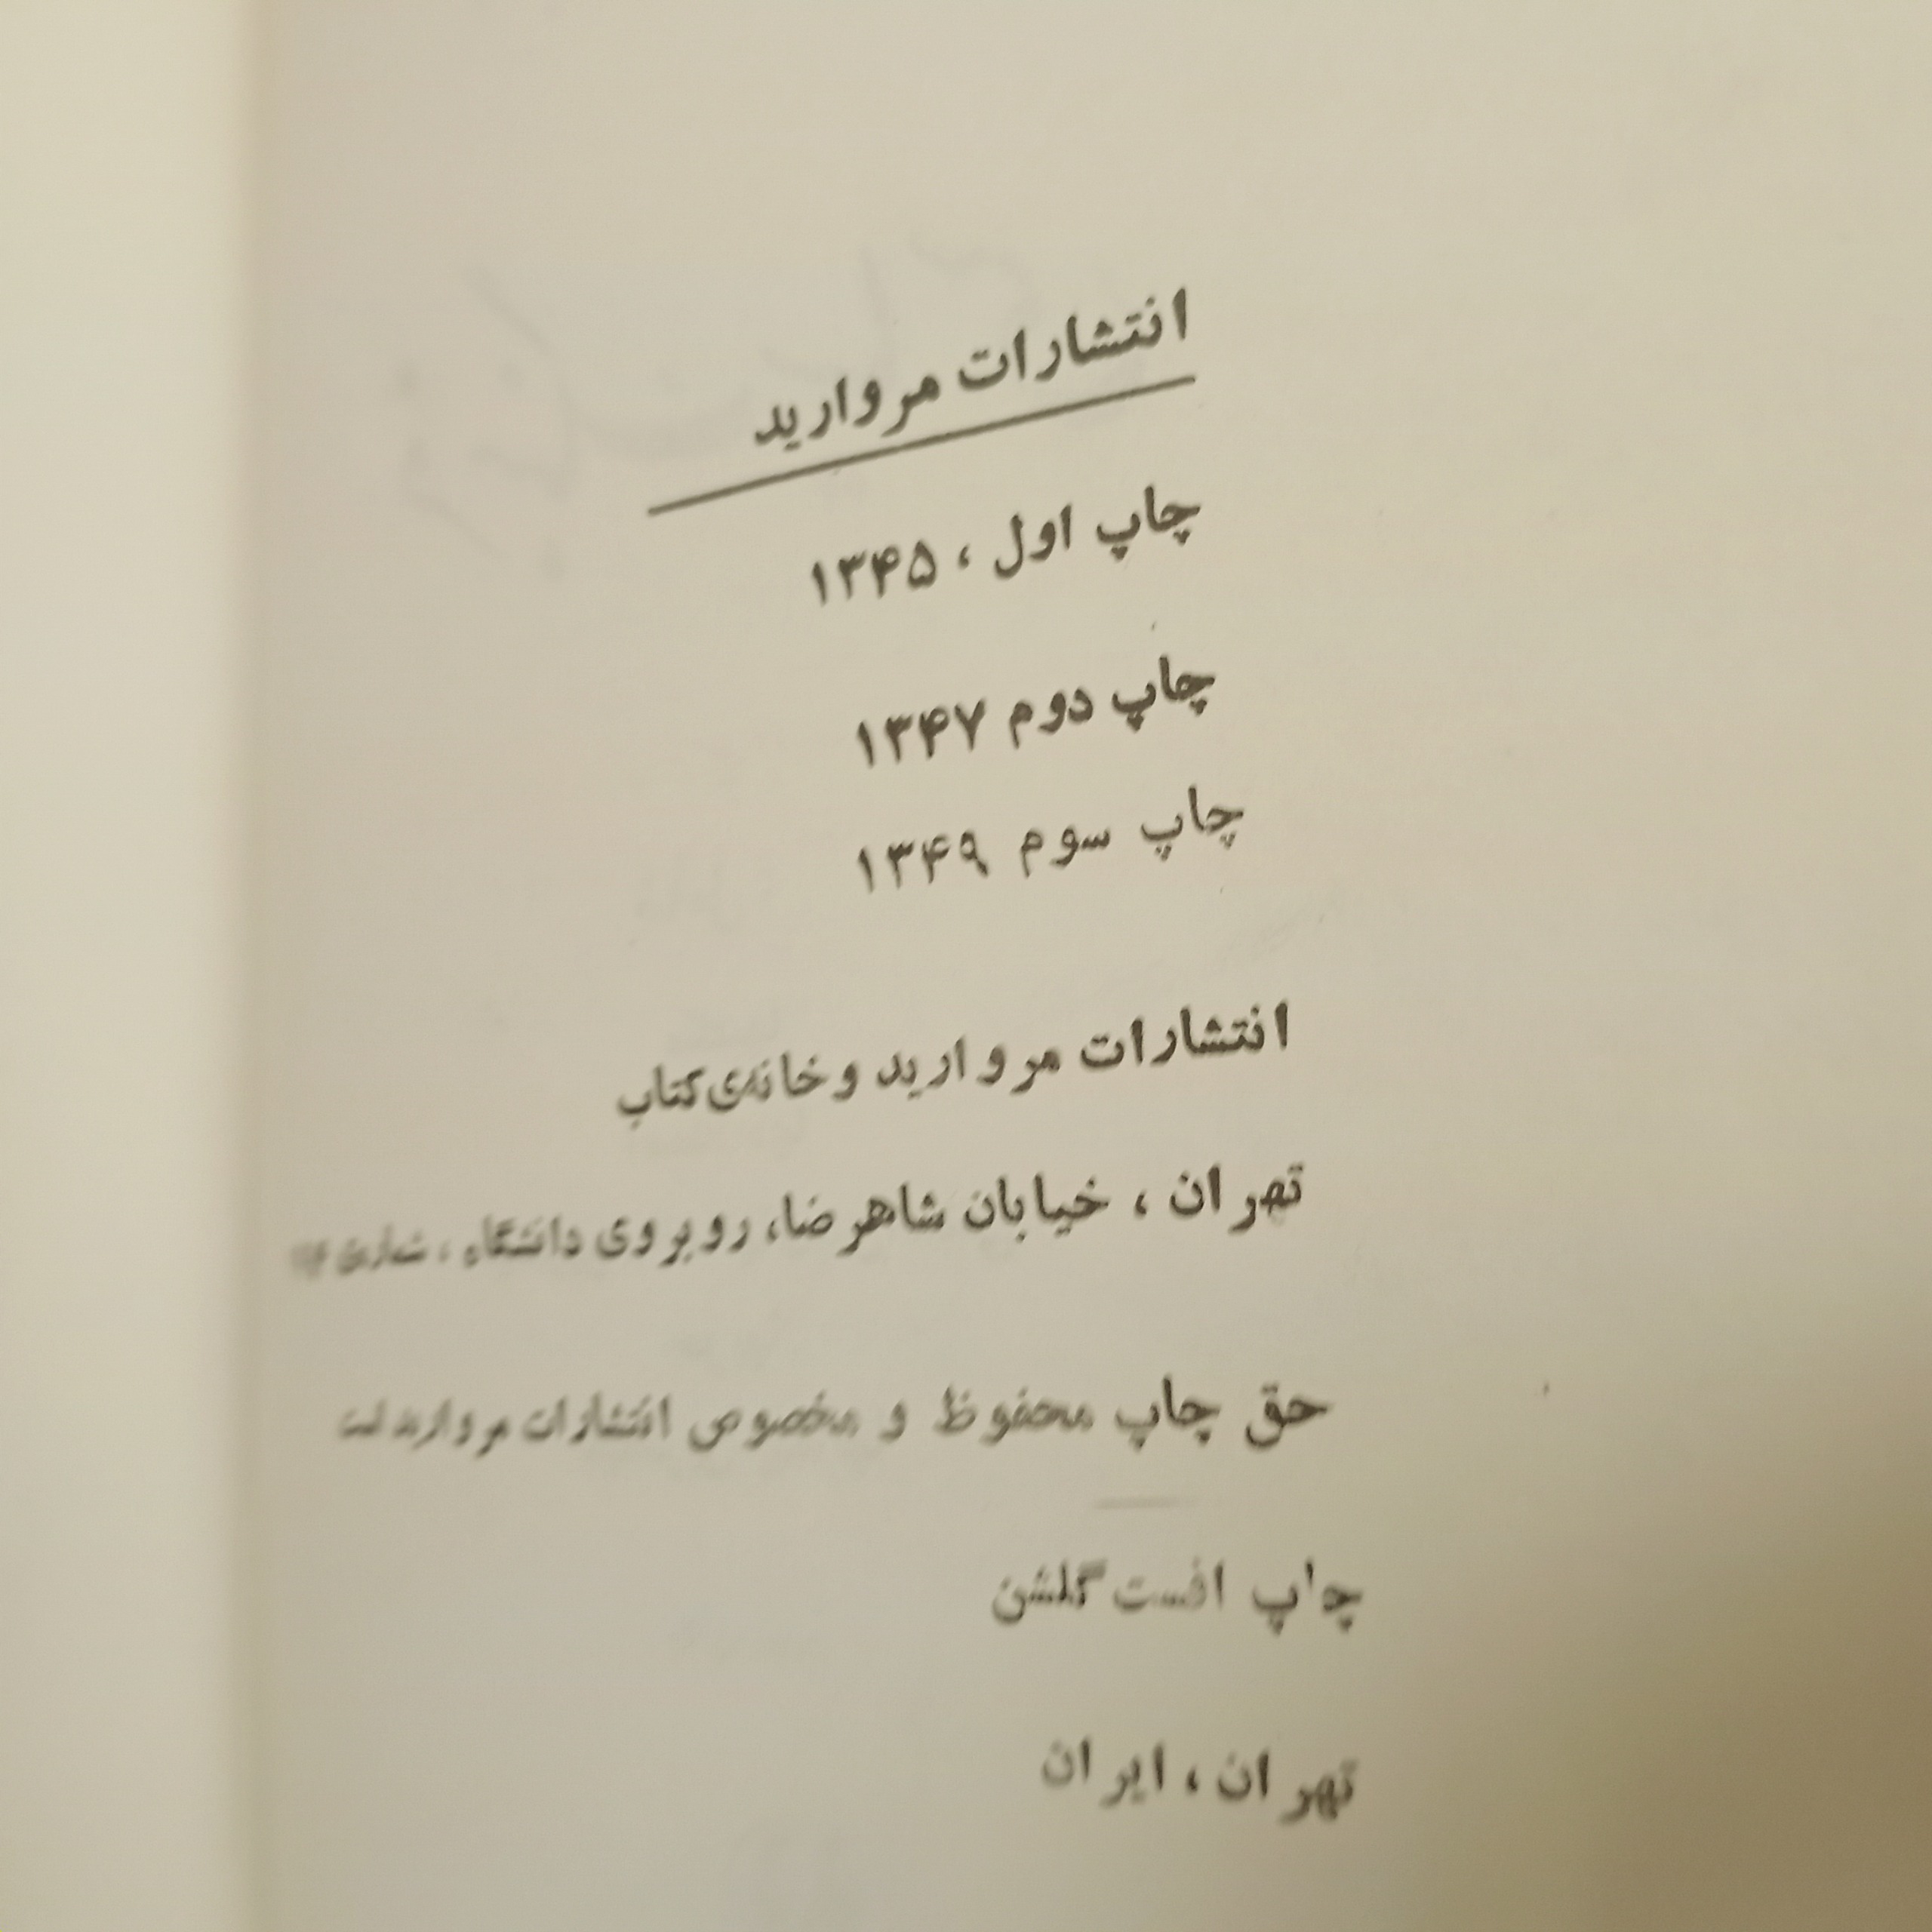 انتشارات مروارید
چاپ اول ، ۱۳۴۵
چاپ دوم ۱۳۴۷
چاپ سوم ۱۳۴۹
انتشارات مروارید و خانه‌ی کتاب
تهران ، خیابان شاهرضا، روبروی دانشگاه ،
حق چاپ محفوظ و مخصوص انتشارات مروارید است
چاپ افست گلشن
تهران ، ایران